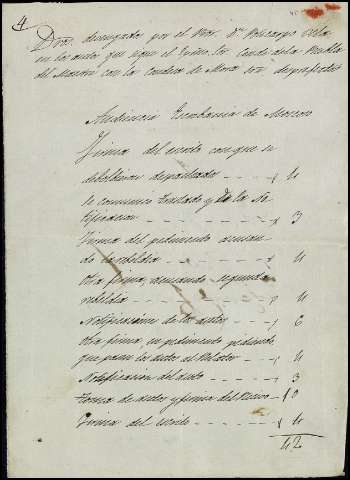 4
Dros. devengados por el Pror. Dn. Policarpo
en los autos que sigue el Exmo. Sor. Conde de la Puebla
del Maestre con la Condesa de Mora sre. despojo
Audiencia Escribania de
Firma del escrito con que se
devolvieron despachado - - - 4
se comunico traslado y de la No
tificacion - - - 3
Firma del pedimento acusan-
do la rebeldia - - - 4
Otra firma, acusando segunda
rebeldia - - - 4
Notificaciones de los autos - - - 6
Otra firma, en pedimento pidiendo
que pasen los autos al Relator - - - 4
Notificacion del auto - - - 3
Toma de autos y firma del Recivo - 10
Firma del escrito - - - 4
42